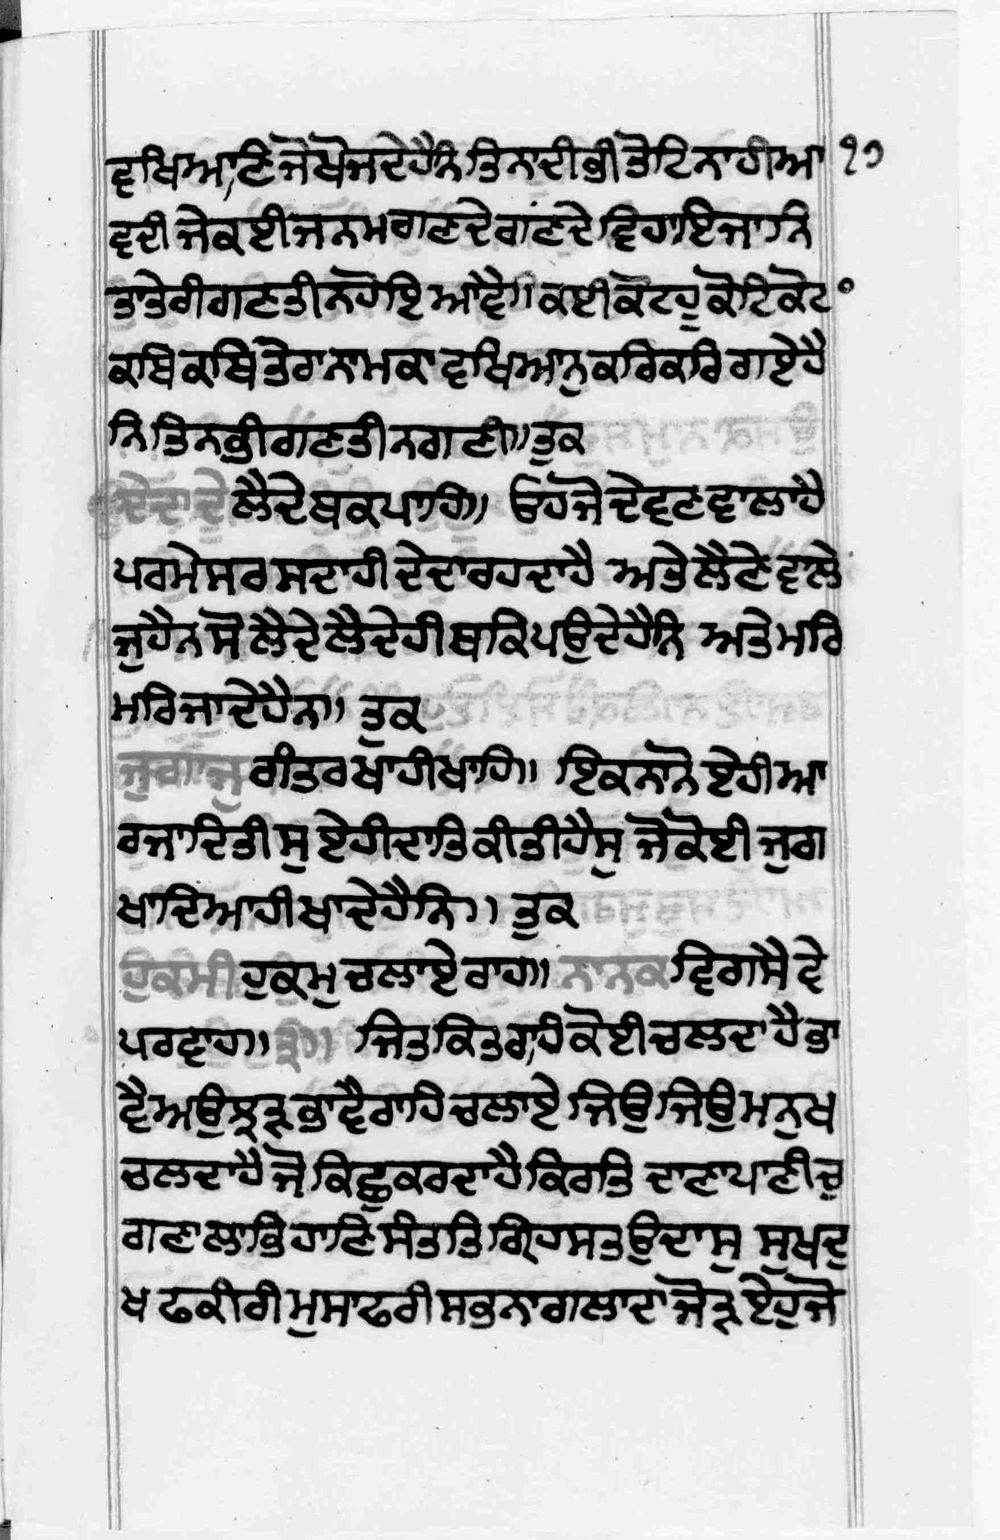 ਵਖਿਆਣਿ ਜੋ ਖੋਜਦੇ ਹੈਨਿ ਤਿਨ ਦੀ ਭੀ ਤੋਟਿ ਨਾਹੀ ਆ ੧੭
ਵਦੀ ਜੇ ਕਈ ਜਨਮ ਗਣਦੇ ਗਣਦੇ ਵਿਹਾਇ ਜਾਨਿ
ਤਾ ਤੇਰੀ ਗਣਤੀ ਨ ਹੋਇ ਆਵੈ॥ ਕਈ ਕੋਟਹੁ ਕੋਟਿ ਕੋਟ
ਕਥਿ ਕਥਿ ਤੇਰਾ ਨਾਮ ਕਾ ਵਖਿਆਨੁ ਕਰਿ ਕਰਿ ਗਏ ਹੈ
ਨਿ ਤਿਨ ਭੀ ਗਣਤੀ ਨ ਗਣੀ॥ ਤੁਕ
ਦੇਦਾ ਦੇ ਲੈਦੇ ਥਕ ਪਾਹਿ॥ ਓਹ ਜੋ ਦੇਵਣ ਵਾਲਾ ਹੈ
ਪਰਮੇਸਰ ਸਦਾ ਹੀ ਦੇਦਾ ਰਹਦਾ ਹੈ ਅਤੇ ਲੈਣੇ ਵਾਲੇ
ਜੁ ਹੈਨ ਸੋ ਲੈਦੇ ਲੈਦੇ ਹੀ ਥਕਿ ਪਉਦੇ ਹੈਨਿ ਅਤੇ ਮਰਿ
ਮਰਿ ਜਾਦੇ ਹੈਨ॥ ਤੁਕ
ਜੁਗਾ ਜੁ ਗੰਤਰ ਖਾਹੀ ਖਾਹਿ॥ ਇਕਨਾ ਨੋ ਏਹੀ ਆ
ਰਜਾ ਦਿਤੀ ਸੁ ਏਹੀ ਦਾਤਿ ਕੀਤੀ ਹੈਸੁ ਜੋ ਕੋਈ ਜੁਗ
ਖਾਦਿਆ ਹੀ ਖਾਦੇ ਹੈਨਿ॥ ਤੁਕ
ਹੁਕਮੀ ਹੁਕਮੁ ਚਲਾਏ ਰਾਹ॥ ਨਾਨਕ ਵਿਗਸੈ ਵੇ
ਪਰਵਾਹ॥੩॥ ਜਿਤ ਕਿਤ ਰਾਹਿ ਕੋਈ ਚਲਦਾ ਹੈ ਭਾ
ਵੈ ਅਉਝੜ ਭਾਵੈ ਰਾਹਿ ਚਲਾਏ ਜਿਉ ਜਿਉ ਮਨੁਖ
ਚਲਦਾ ਹੈ ਜੋ ਕਿਛੁ ਕਰਦਾ ਹੈ ਕਿਰਤਿ ਦਾਣਾ ਪਾਣੀ ਚੁ
ਗਣਾ ਲਾਭਿ ਹਾਣਿ ਸੰਤਤਿ ਗ੍ਰਿਹਸਤ ਉਦਾਸੁ ਸੁਖ ਦੁ
ਖ ਫਕੀਰੀ ਮੁਸਾਫਰੀ ਸਭਨਾ ਗਲਾ ਦਾ ਜੋੜ ਏਹੁ ਜੋ